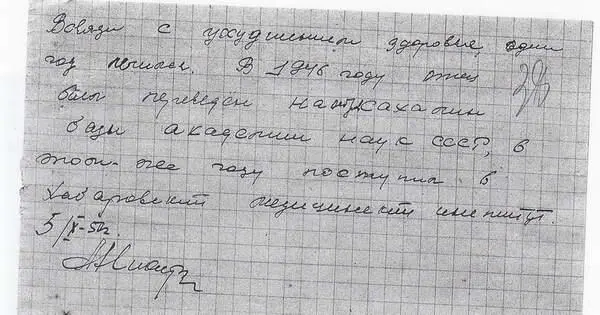 Всвязи с ухудшением здоровья, один
год лечился. В 1946 году отец
был переведен на Сахалин
базы академии наук СССР, в
том-же году поступил в
Хабаровский медицинский институт.
5/X-52г.